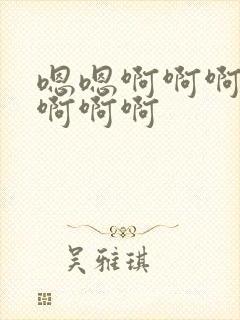 嗯嗯啊啊啊
啊啊啊
吴雅琪